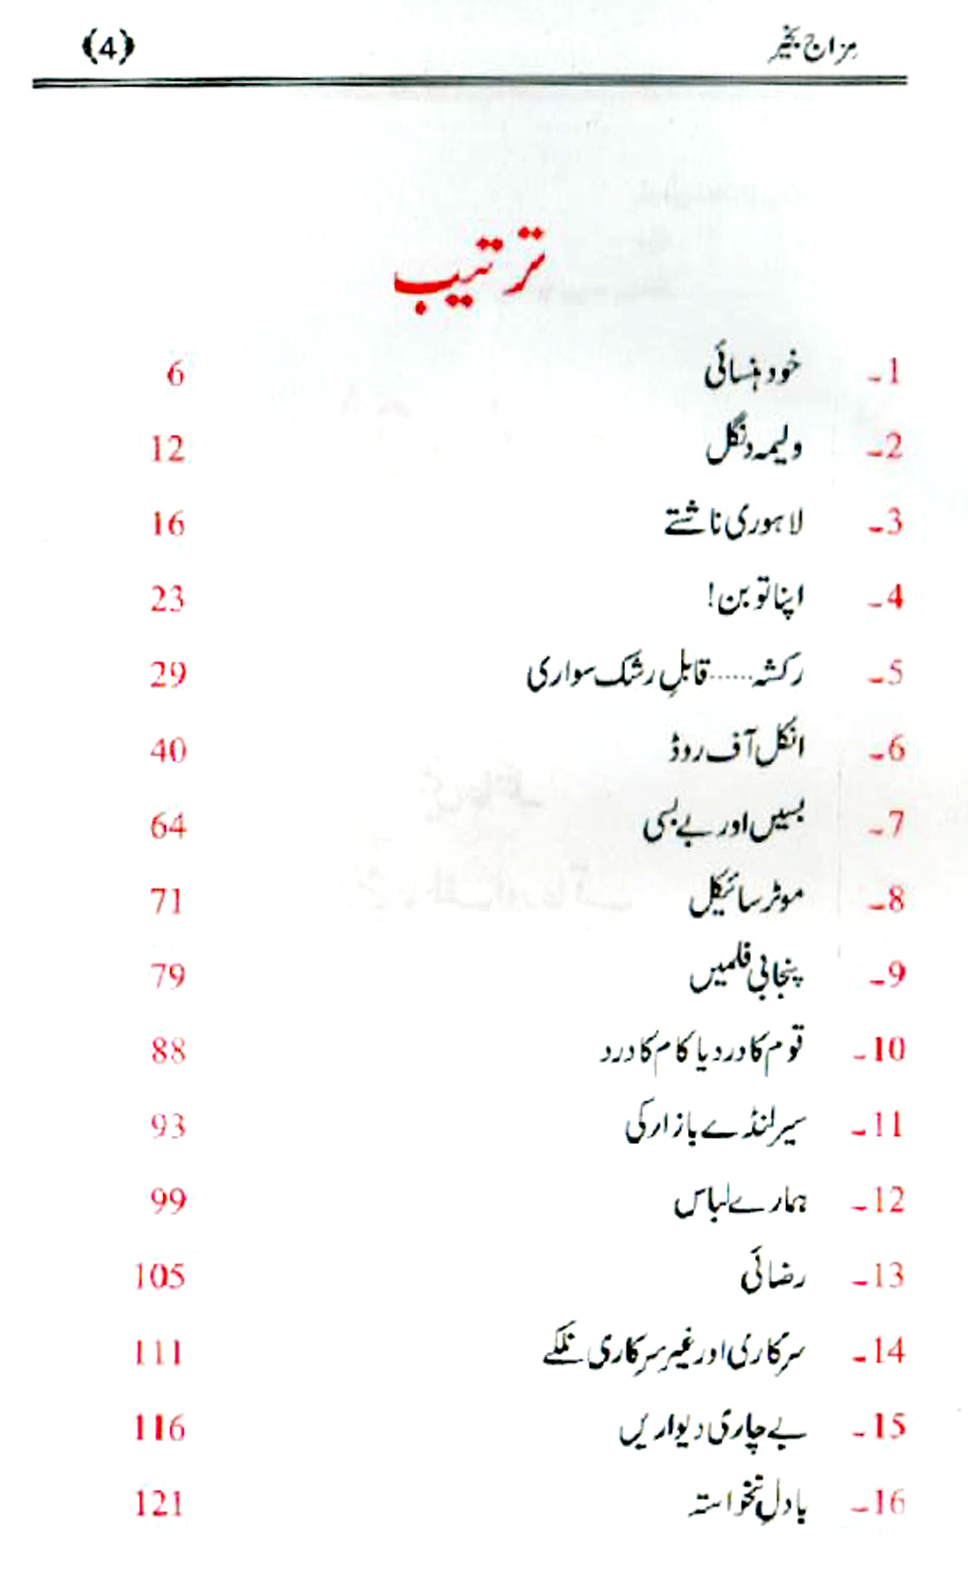 مزاج بخیر (4)
ترتیب
1۔ خود ہنسائی 6
2۔ ولیمہ دنگل 12
3۔ لاہوری ناشتے 16
4۔ اپنا تو بن! 23
5۔ رکشہ......قابلِ رشک سواری 29
6۔ انکل آف روڈ 40
7۔ بسیں اور بے بسی 64
8۔ موٹر سائیکل 71
9۔ پنجابی فلمیں 79
10۔ قوم کا درد یا کام کا درد 88
11۔ سیر لنڈے بازار کی 93
12۔ ہمارے لباس 99
13۔ رضائی 105
14۔ سرکاری اور غیر سرکاری نلکے 111
15۔ بے چاری دیواریں 116
16۔ بادلِ نخواستہ 121